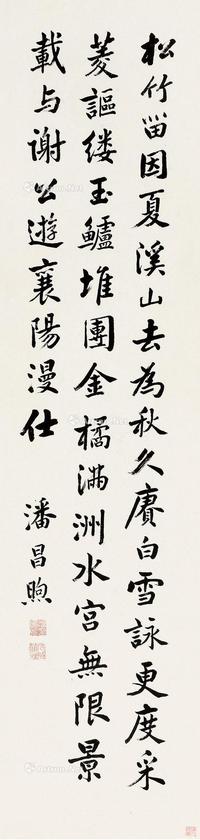 松竹留因夏溪山去為秋久賡白雪詠更度采
菱謳缕玉鱸堆團金橘滿洲水宮無限景
載与謝公遊襄陽漫仕
潘昌煦